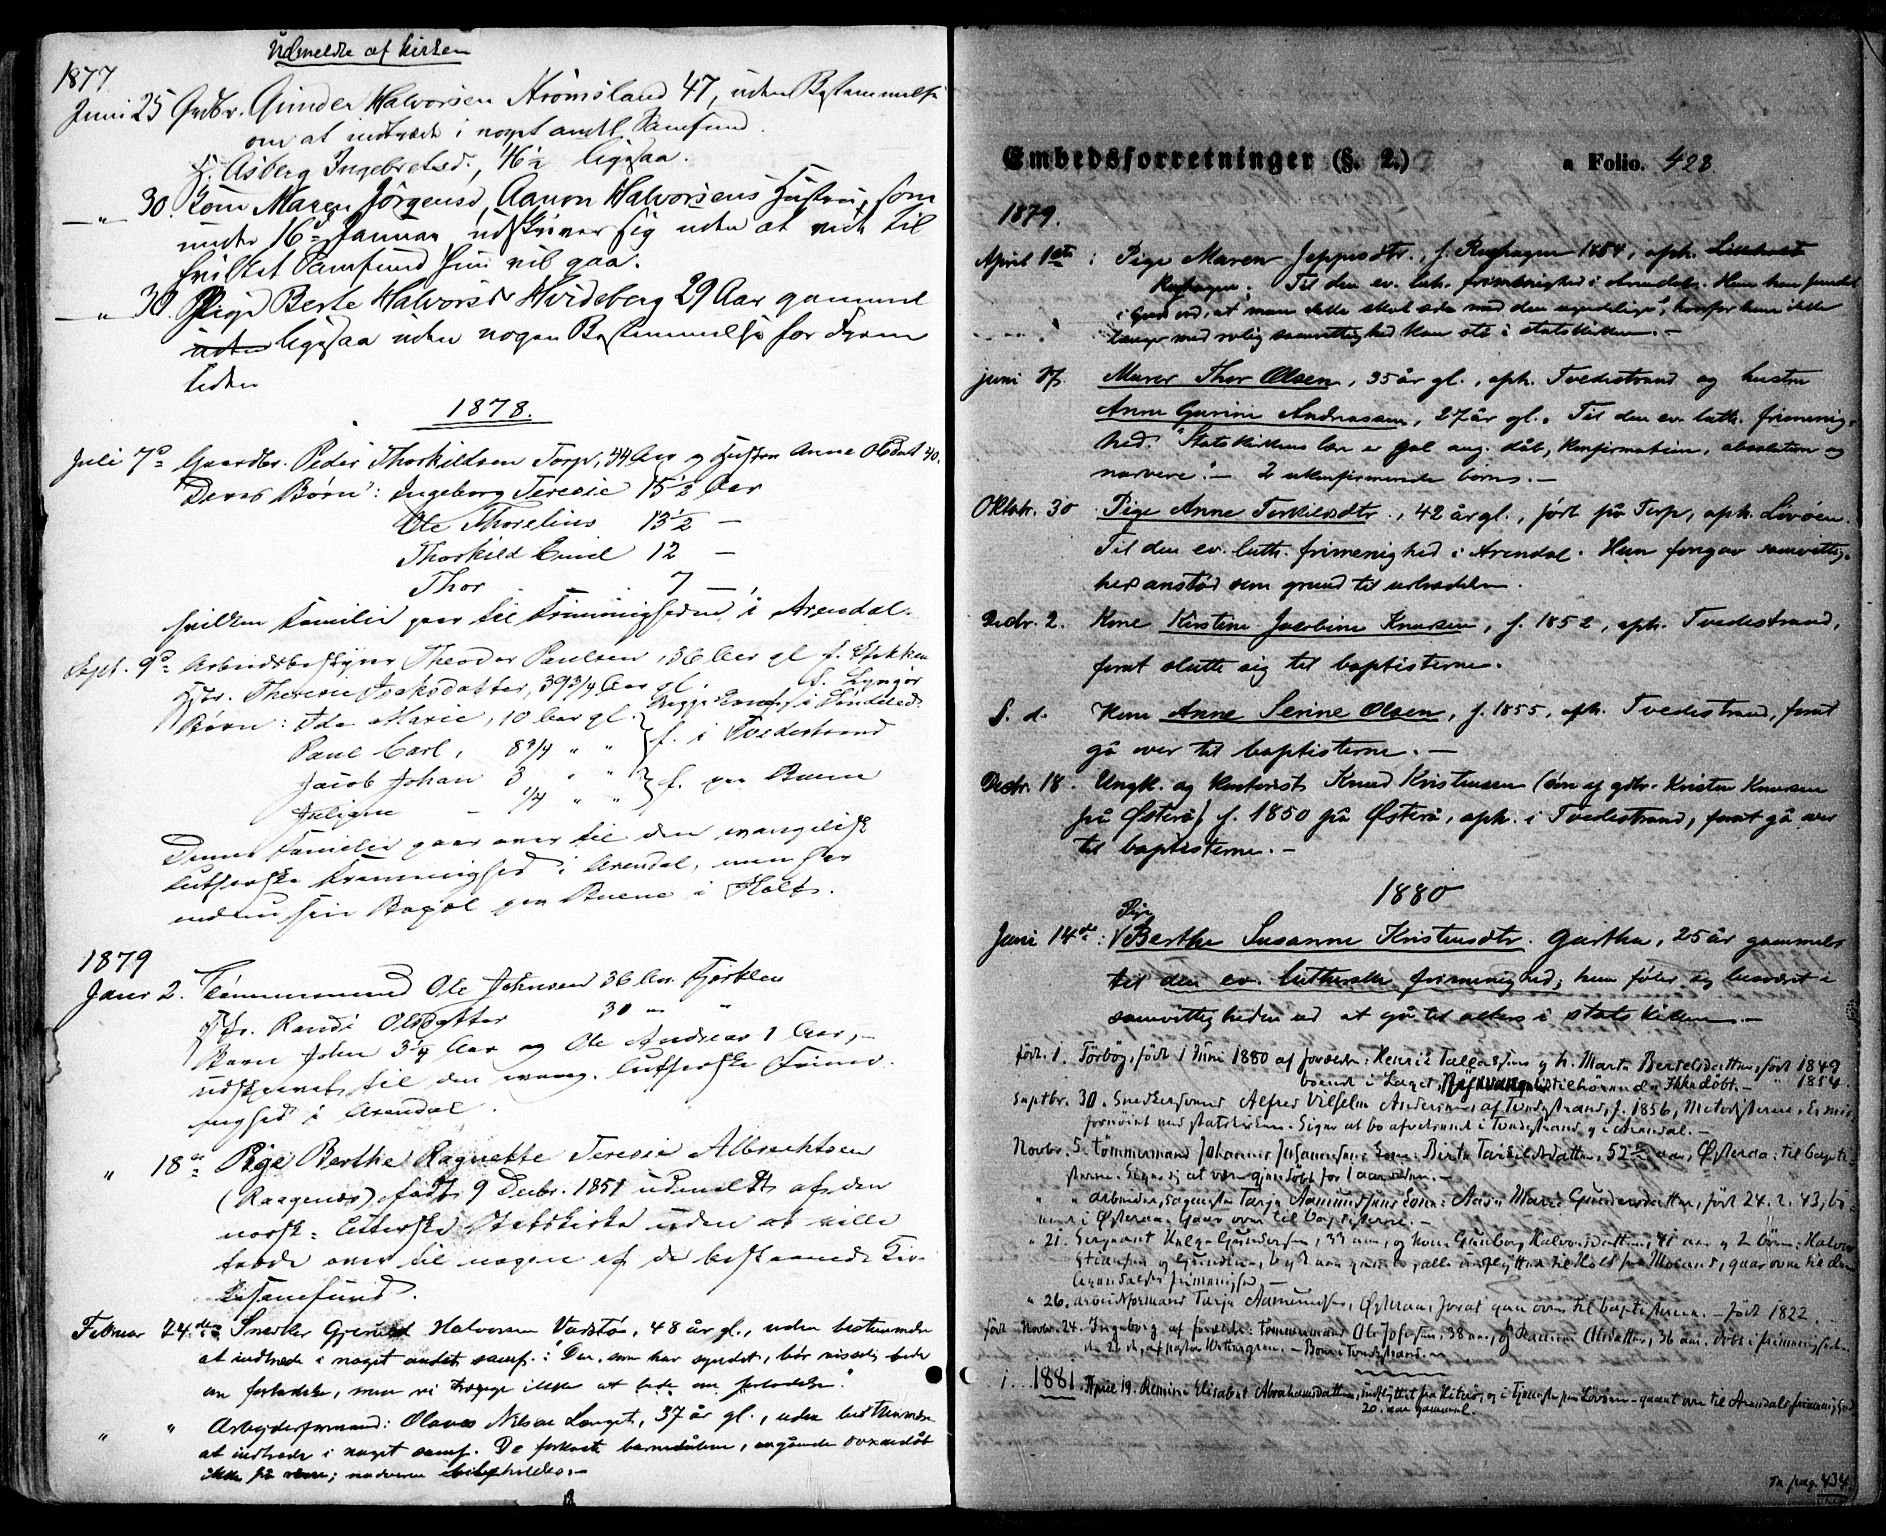 Udmeldte af Kirken
1877
Juni 25 Grdbr. Gunder Halvorsen Strömsland 47, uden Bestemmelse
om at indtræde i noget andet Samfund.
H. Asberg Ingebretsd., 46½ ligesaa.
—"— 30. Kone Maren Jörgensd, Aanon Halvorsens Hustru, som
under 16de Januar udskriver sig uden at vide til
hvilket Samfund hun vil gaa.
—"— 30. Pige Berte Halvorsd Hvideberg 29 Aar gammel
uden ligesaa uden nogen Bestemmelse for Frem
tiden
1878.
Juli 7de Gaardbr. Peder Thorkildsen Torp, 44 Aar og Hustru Anne Olsdat 40.
Deres Börn: Ingeborg Teresie 15½ Aar
Ole Thorelius 13½ —
Thorkild Emil 12 —
Thor 7 —
hvilken Familie gaar til Frimenigheden i Arendal.
Sept. 9de Arbeidsbestyrer Theodor Paulsen, 36 Aar gl f.
Hstr. Therese Isaksdatter, 39 3/4 Aar gl. f. Lyngör
Börn: Ida Marie, 10 Aar gl. Begge i Söndeled
Paul Carl, 8 3/4 " " f. i Tvedestrand
Jacob Johan 3 " " f. paa Buene
Juliane - 1/4 " "
Denne Familie gaar over til den evangelisk
lutherske Frimenighed i Arendal, men har
endnu sin Bopæl paa Buene i Holt.
1879
Janr 2. Tömmermand Ole Johnsen 36 Aar. Fjerklev
Hstr. Randi Olsdatter 30 — "
Barn John 3¼ Aar og Ole Andreas 1 Aar, —
udskrevet til den evang. lutherske Frime-
nighed i Arendal.
" 18de Pige Berthe Ragnette Teresie Albrechtsen
(Raagenæs), födt 9 Decbr. 1851 udmeldt af den
norsk-lutherske Statskirke uden at ville
træde over til nogen af de bestaaende Kir-
kesamfund.
Februar 24de Snekker Gjeruld Halvorsen Vadstö, 48 år gl., uden bestemmelse
at indtræde i noget andet samf.: "Den, som har syndet, bör visselig bede
om forladelse, men vi trænge ikke at bede om forladelse".
" " Arbeidsformand: Olaus Nilsen Langet, 37 år gl., uden bestemmelse
at indtræde i noget samf. De forkaste barnedåben, angående voxendåb
ikke på rene; nadveren bibeholdes. —
Embedsforretninger (§. 2.) a Folio. 428
1879.
April 1ste: Pige Maren Jeppesdtr., f. Rughagen 1854, oph. Lilleholt
Rughagen. Til den ev. luth. frimenighed i Arendal. Hun har fundet
i Guds ord, at man ikke skal æde med den ugudelige, hvorfor hun ikke
længer med rolig samvittighed kan stå i statskirken. —
Juni 17. Murer Thor Olsen, 35 år gl., oph. Tvedestrand og hustru
Anne Gurine Andreassen, 27 år gl. Til den ev. luth. frimenig-
hed. "Statskirkens lære er gal ang. dåb, konfirmation, absolution og
nadvere". — 2 ukonfirmerede börn. —
Oktobr. 30 Pige Anne Terkildsdtr., 42 år gl., född på Torp, oph. Lövöen.
Til den ev. luth. frimenighed i Arendal. Hun foregav samvittig-
hedsanstöd som grund til udtrædelsen.
Decbr. 2. Kone Kirstine Jacobine Knudsen, f. 1852, oph. Tvedestrand,
forat slutte sig til baptisterne.
S. d. Kone Anne Serine Olsen, f. 1855, oph. Tvedestrand, forat
gå over til baptisterne. —
Decbr. 18. Ungk. og kontorist Knud Kristensen (sön af gdbr. Kristen Knudsen
på Österö) f. 1850 på Österö, oph. i Tvedestrand, forat gå over
til baptisterne. —
1880
Juni 14de: Pige Berthe Susanne Kristensdtr. Gjærtha, 25 år gammel
til den ev. lutherske frimenighed; hun föler sig besværet i
samvittigheden ved at gå til alters i statskirken. —
födt. 1. Torbög, födt 1 Juni 1880 af forældre: Henrik Tallaksens og h. Marte Bertelsdatter, födt 1849
boende i Langet, tilhörende Ikke döbt. — " 1854.
Septbr. 30. Snedkersvend Alfred Vilhelm Andersen, af Tvedestrand, f. 1856, Metodisterne. Er mis-
fornöiet med statskirken. Siger at bo afvekslende i Tvedestrand og i Arendal. —
Novbr. 5. Tömmermand Johannes Johannesens Kone: Birte Tarkildsdatter, 52 aar, Österaa: til bapti-
sterne. Siger sig at være gjendöbt for 1 aar siden. —
" " Arbeider, sagmester Tarje Aamundsens Kone: Aase Marie Gundersdatter, födt 24. 2. 43, bo-
ende i Österaa. Gaar over til baptisterne. —
" 21. Sergeant Helge Gundersen, 33 aar, og kone Gunborg Halvorsdatter, 41 aar og 2 börn: Halvor
Steensen og Gunder, alle indflyttede til Holt fra Moland, gaar over til den
Arendalske frimenighed. —
" 26. arbeidsformand Tarje Aamundsen, Österaa, forat gaa over til baptisterne. — födt 1822.
födt Novbr. 24. Ingeborg af forældre: Tömmermand Ole Johnsen, 38 aar, og Randi Olsdatter, 36 aar. döbt i frimenigheden
de 26 de, af pastor Wettergren. — Boende i Tvedestrand.
1881. April 19. Remine Elisabet Abrahamsdatter, indflyttet fra Hiterö, og i Tjeneste paa Lövöen — gaaet over til Arendals frimenighed.
20 aar gammel.
Se pag. 434